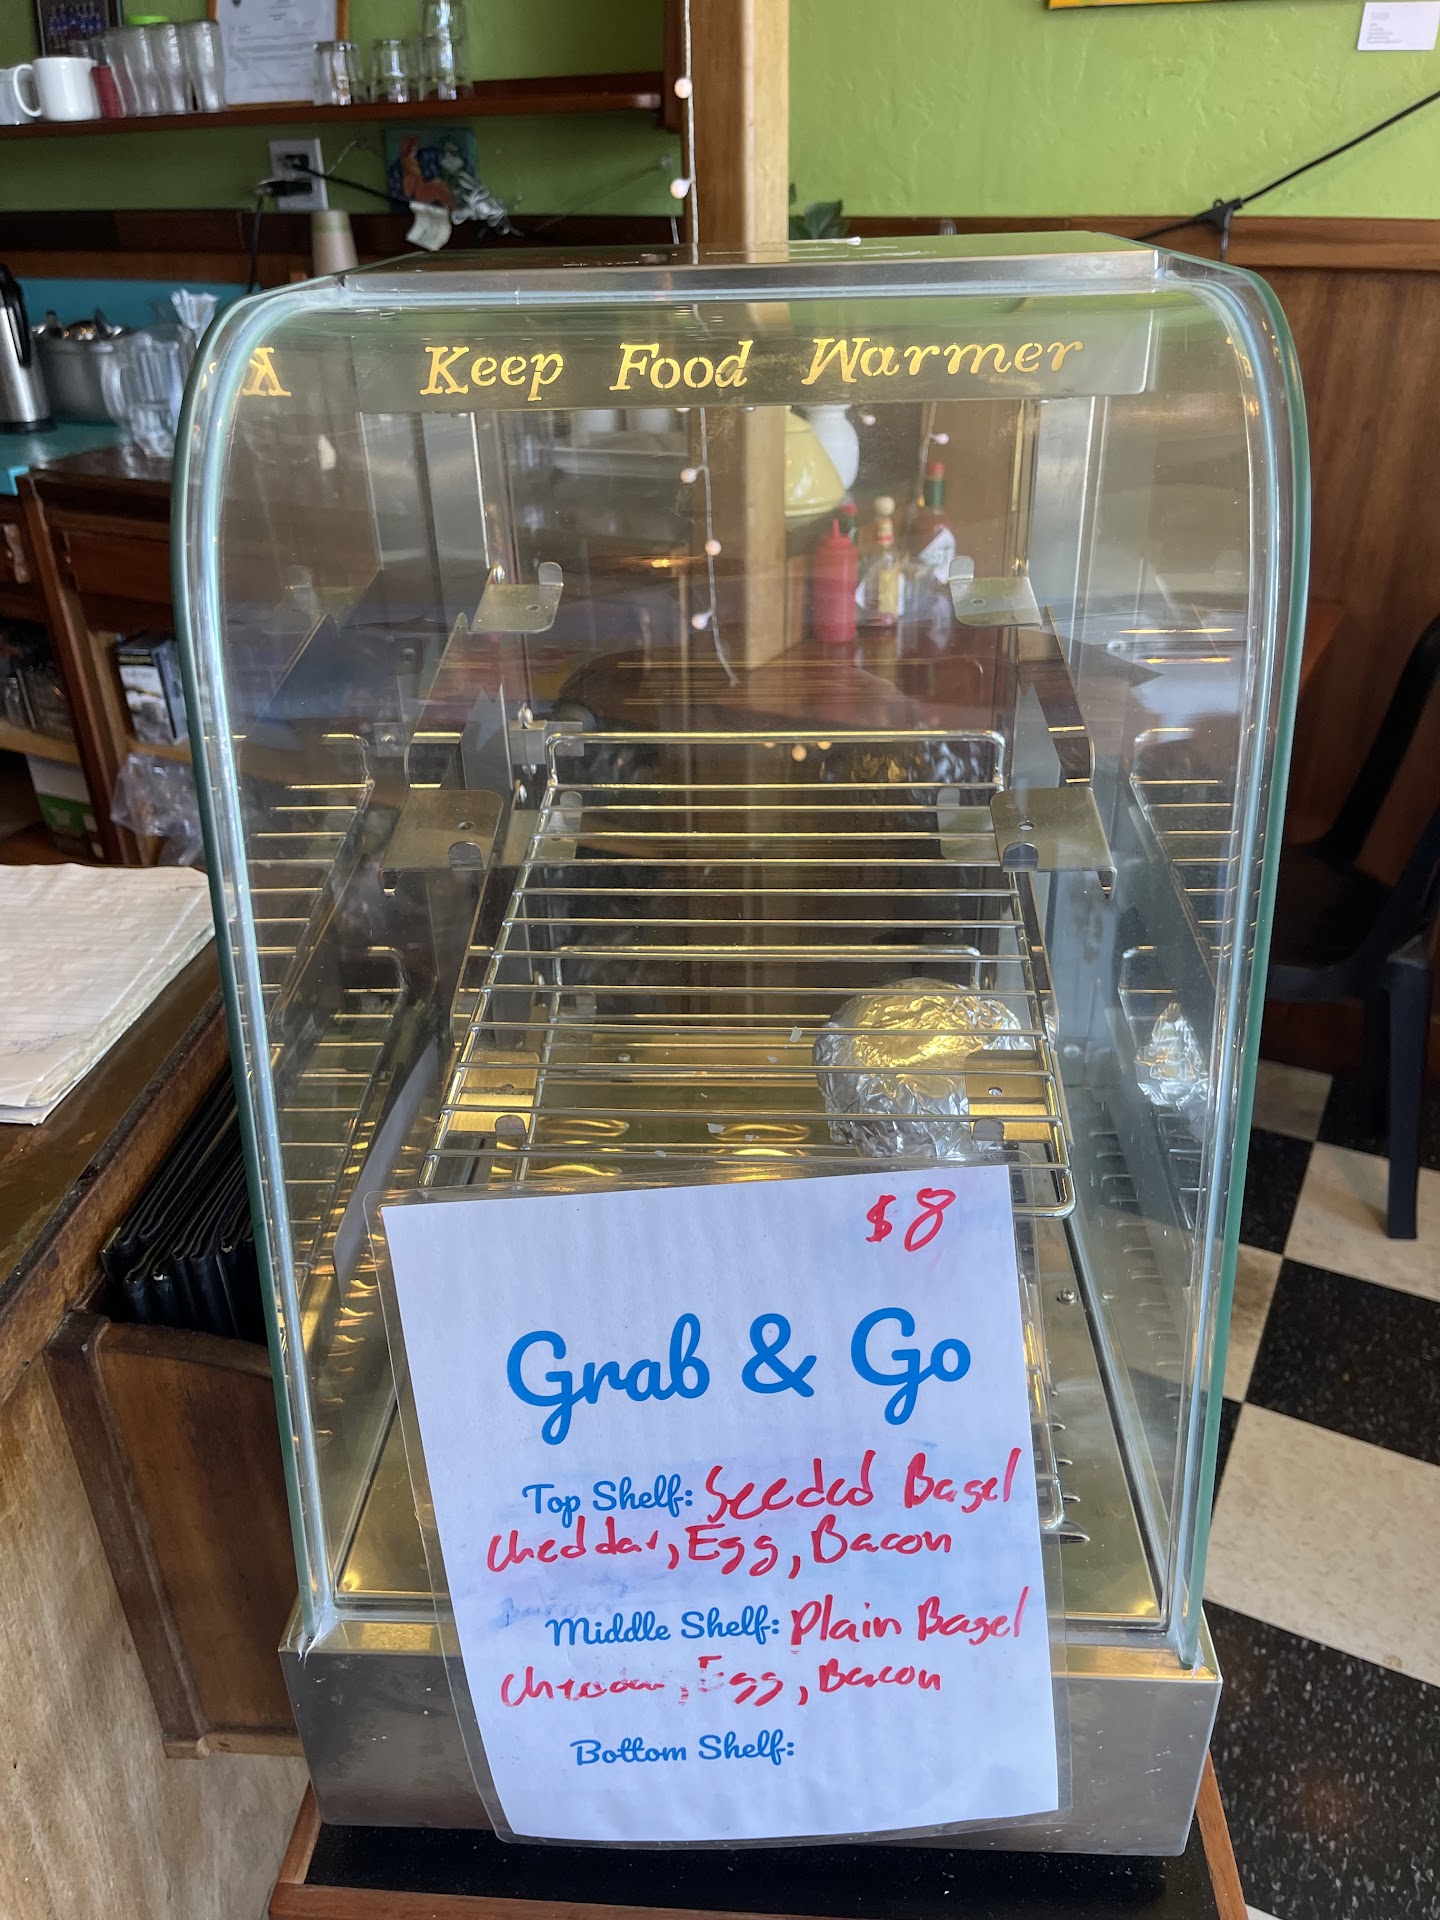 Keep Food Warmer
$8
Grab & Go
Top Shelf: Seeded Bagel
Cheddar, Egg, Bacon
Middle Shelf: Plain Bagel
Cheddar, Egg, Bacon
Bottom Shelf: